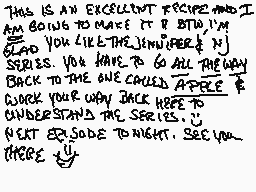 THIS IS AN EXCELLENT RECIPE AND I
AM GOING TO MAKE IT & BTW, I'M
GLAD YOU LIKE THE JENNIPER & NJ
SERIES. YOU HAVE TO GO ALL THE WAY
BACK TO THE ONE CALLED APPLE &
WORK YOUR WAY BACK HERE TO
UNDERSTAND THE SERIES.
NEXT EPISODE TONIGHT. SEE YOU
THERE